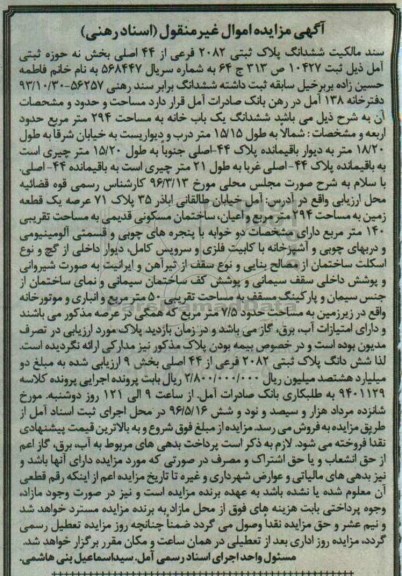 آگهی مزایده اموال غیرمنقول (اسناد رهنی)
سند مالکیت ششدانگ پلاک ثبتی ۲۰۸۲ فرعی از ۴۴ اصلی بخش نه حوزه ثبتی
آمل ذیل ثبت ۱۰۴۲۷ ص ۳۱۳ ج ۶۴ به شماره سریال ۵۶۸۴۴۷ به نام خانم فاطمه
حسین زاده بریرخیل سابقه ثبت داشته ششدانگ برابر سند رهنی ۵۶۲۵۷-۹۳/۱۰/۳۰
دفترخانه ۱۳۸ آمل در رهن بانک صادرات آمل قرار دارد مساحت و حدود و مشخصات
آن به شرح ذیل می باشد ششدانگ یک باب خانه به مساحت ۲۹۴ متر مربع حدود
اربعه و مشخصات: شمالا به طول ۱۵/۱۵ متر درب و دیواریست به خیابان شرقا به طول
۱۸/۲۰ متر به دیوار باقیمانده پلاک ۴۴-اصلی جنوباً به طول ۱۵/۲۰ متر چپری است
به باقیمانده پلاک ۴۴- اصلی غربا به طول ۲۱ متر چپری است به باقیمانده ۴۴- اصلی.
با سلام به شرح صورت مجلس محلی مورخ ۹۶/۳/۱۳ کارشناس رسمی قوه قضائیه
محل ارزیابی واقع در آدرس: آمل خیابان طالقانی اباذر ۳۵ پلاک ۷۱ عرصه یک قطعه
زمین به مساحت ۲۹۴ متر مربع و اعیان، ساختمان مسکونی قدیمی به مساحت تقریبی
۱۴۰ متر مربع دارای مشخصات دو خوابه با پنجره های چوبی و قسمتی آلومینیومی
و دربهای چوبی و آشپزخانه با کابینت فلزی و سرویس کامل، دیوار داخلی از گچ و نوع
اسکلت ساختمان از مصالح بنایی و نوع سقف از تیرآهن و ایرانیت به صورت شیروانی
و پوشش داخلی سقف سیمانی و پوشش کف ساختمان سیمانی و نمای ساختمان از
جنس سیمان و پارکینگ مسقف به مساحت تقریبی ۵۰ متر مربع و انباری و موتورخانه
واقع در زیرزمین به مساحت حدود ۷/۵ متر مربع که همگی در عرصه مذکور می باشند
و دارای امتیازات آب، برق، گاز می باشد و در زمان بازدید پلاک مورد ارزیابی در تصرف
مدیون بوده است و در خصوص بیمه بودن پلاک مذکور نیز مدارکی ارائه نگردیده است.
لذا شش دانگ پلاک ثبتی ۲۰۸۲ فرعی از ۴۴ اصلی بخش ۹ ارزیابی شده به مبلغ دو
میلیارد هشتصد میلیون ریال ۲/۸۰۰/۰۰۰/۰۰۰ ریال بابت پرونده اجرایی پرونده کلاسه
۹۴۰۱۱۲۹ به طلبکاری بانک صادرات آمل، از ساعت ۹ الی ۱۲۱ روز دوشنبه. مورخ
شانزده مرداد هزار و سیصد و نود و شش ۹۶/۵/۱۶ در محل اجرای ثبت اسناد آمل از
طریق مزایده به فروش می رسد. مزایده از مبلغ فوق شروع و به بالاترین قیمت پیشنهادی
نقدا فروخته می شود. لازم به ذکر است پرداخت بدهی های مربوط به آب، برق، گاز اعم
از حق انشعاب و یا حق اشتراک و مصرف در صورتی که مورد مزایده دارای آنها باشد و
نیز بدهی های مالیاتی و عوارض شهرداری و غیره تا تاریخ مزایده اعم از اینکه رقم قطعی
آن معلوم شده یا نشده باشد به عهده برنده مزایده است و نیز در صورت وجود مازاد،
وجوه پرداختی بابت هزینه های فوق از محل مازاد به برنده مزایده مسترد خواهد شد
و نیم عشر و حق مزایده نقدا وصول می گردد ضمنا چنانچه روز مزایده تعطیل رسمی
گردد، مزایده روز اداری بعد از تعطیلی در همان ساعت و مکان مقرر برگزار خواهد شد.
مسئول واحد اجرای اسناد رسمی آمل. سید اسماعیل بنی هاشمی.